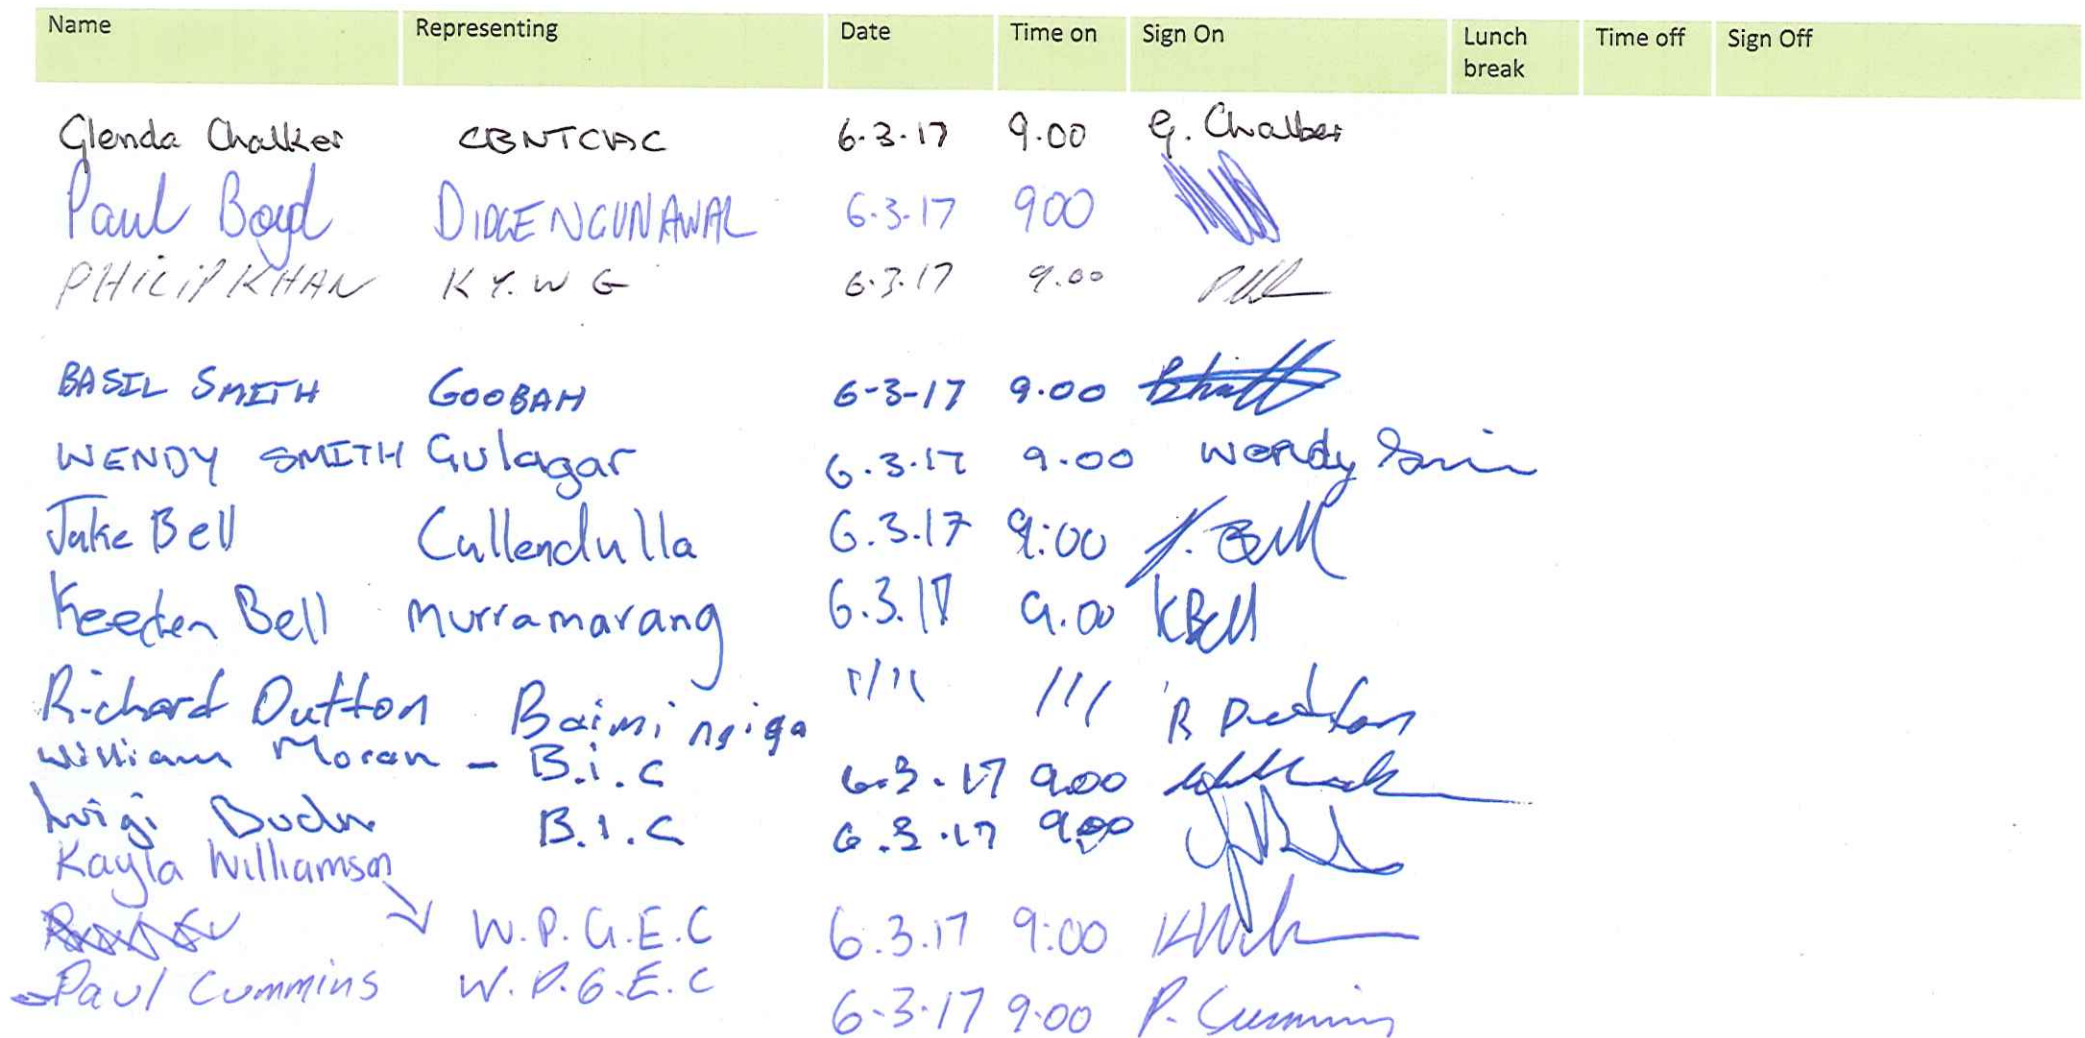 Name Representing Date Time on Sign On Lunch break Time off Sign Off
Glenda Chalker CBNTCHAC 6.3.17 9.00 G. Chalker
Paul Boyd DIDGE NGUNAWAL 6.3.17 900
PHILIP KHAN K Y. W G 6.3.17 9.00
BASIL SMITH GOOBAH 6-3-17 9.00
WENDY SMITH Gulagar 6.3.17 9.00 Wendy Smith
Jake Bell Cullendulla 6.3.17 9:00 J. Bell
Keeden Bell Murramarang 6.3.17 9.00 KBell
Richard Dutton - Baiminqiga 11/11 /// R Dutton
William Moran - B.i.C 6.3.17 9.00
Luigi B.I.C 6.3.17 9.00
Kayla Williamson
W.P.G.E.C 6.3.17 9:00
Paul Cummins W.P.G.E.C 6.3.17 9.00 P. Cummins